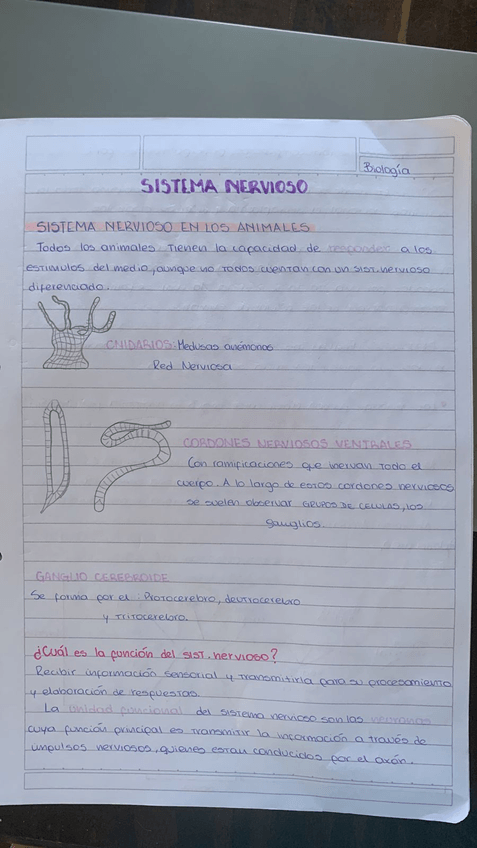 Biología
SISTEMA NERVIOSO
SISTEMA NERVIOSO EN LOS ANIMALES
Todos los animales tienen la capacidad de responder a los
estímulos del medio, aunque no todos cuentan con un sist. nervioso
diferenciado.
CNIDARIOS: Medusas anémonas
Red Nerviosa
CORDONES NERVIOSOS VENTRALES
Con ramificaciones que inervan todo el
cuerpo. A lo largo de estos cordones nerviosos
se suelen observar GRUPOS DE CELULAS, los
ganglios.
GANGLIO CEREBROIDE
Se forma por el: Protocerebro, deutrocerebro
y Tritocerebro.
¿Cuál es la función del sist. nervioso?
Recibir información sensorial y transmitirla para su procesamiento
y elaboración de respuestas.
La unidad funcional del sistema nervioso son las neuronas
cuya función principal es transmitir la información a través de
impulsos nerviosos, quienes estan conducidos por el axón.